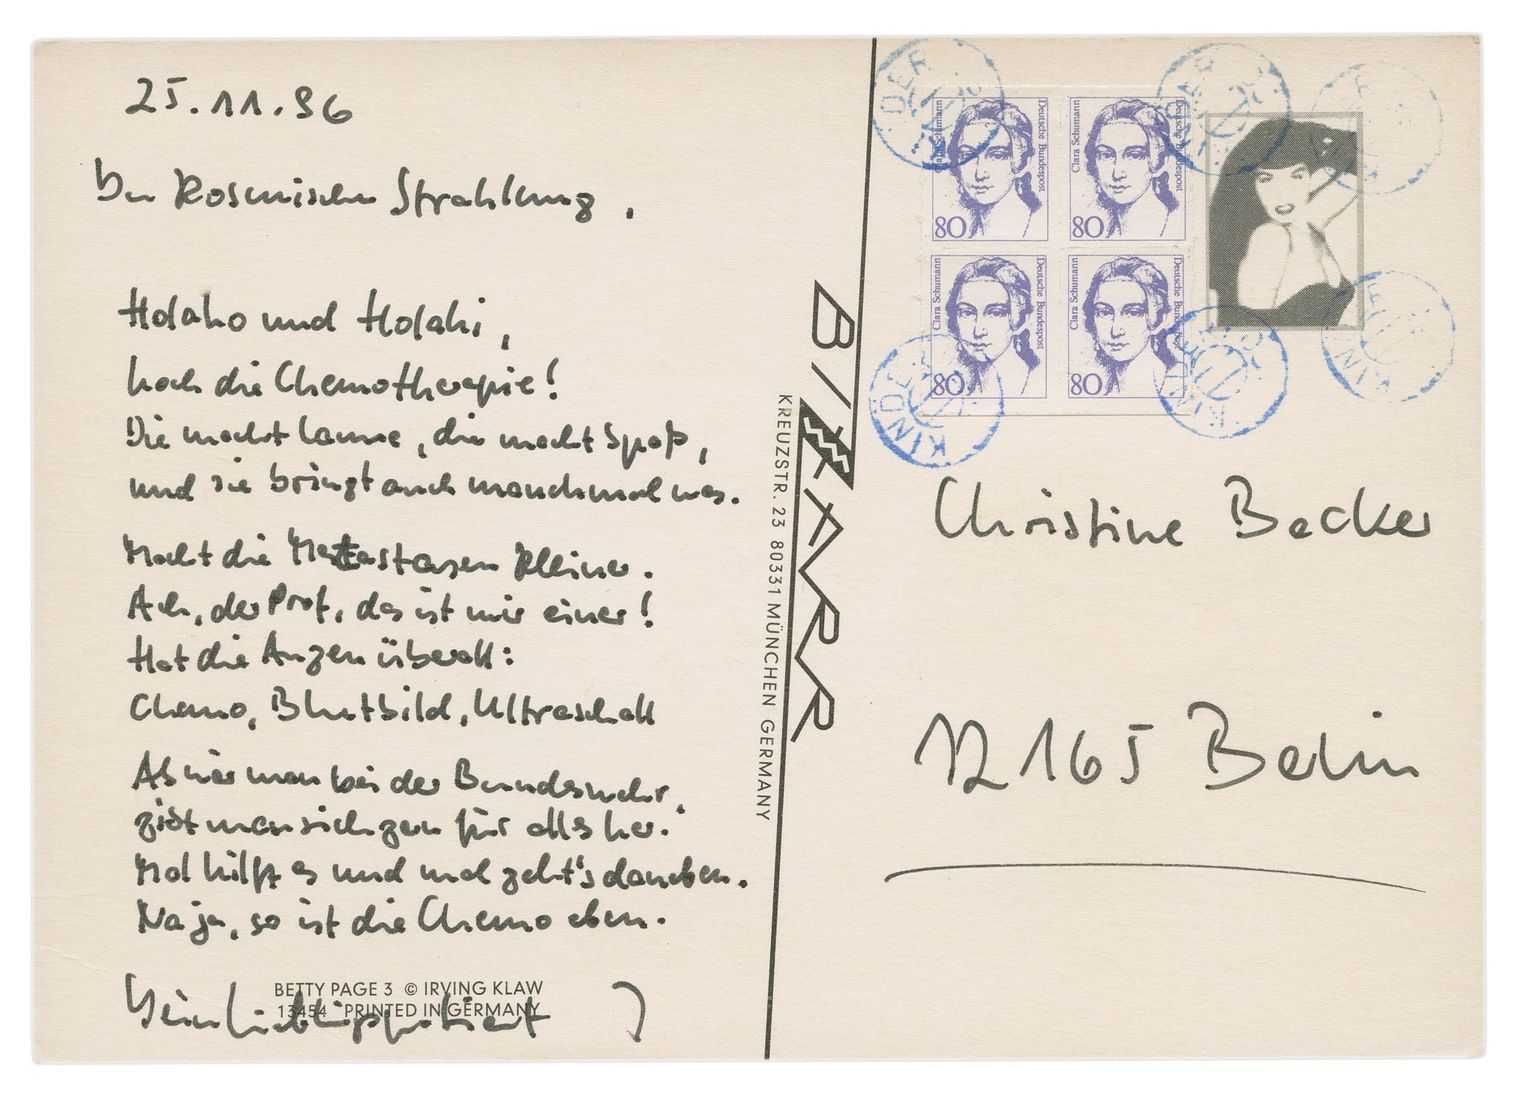 25.11.96
Du Kosmischer Strahlkung,
Holaho und Holahi,
hoch die Chemotherapie!
Die macht Laune, die macht Spaß,
und sie bringt auch manchmal was.
Macht die Metastasen kleiner.
Ach, der Prof, das ist mir einer!
Hat die Augen überall:
Chemo, Blutbild, Ultraschall
Als wär man bei der Bundeswehr,
gibt man sich gern für alles her.
Mal hilft es und mal geht's daneben.
Na ja, so ist die Chemo eben.
Dein Lieblingspatient
BETTY PAGE 3 © IRVING KLAW
13454 PRINTED IN GERMANY
BIZARR
KREUZSTR. 23 80331 MÜNCHEN GERMANY
Clara Schumann Deutsche Bundespost 80
Clara Schumann Deutsche Bundespost 80
Clara Schumann Deutsche Bundespost 80
Clara Schumann Deutsche Bundespost 80
KINDER
Christine Becker
12165 Berlin